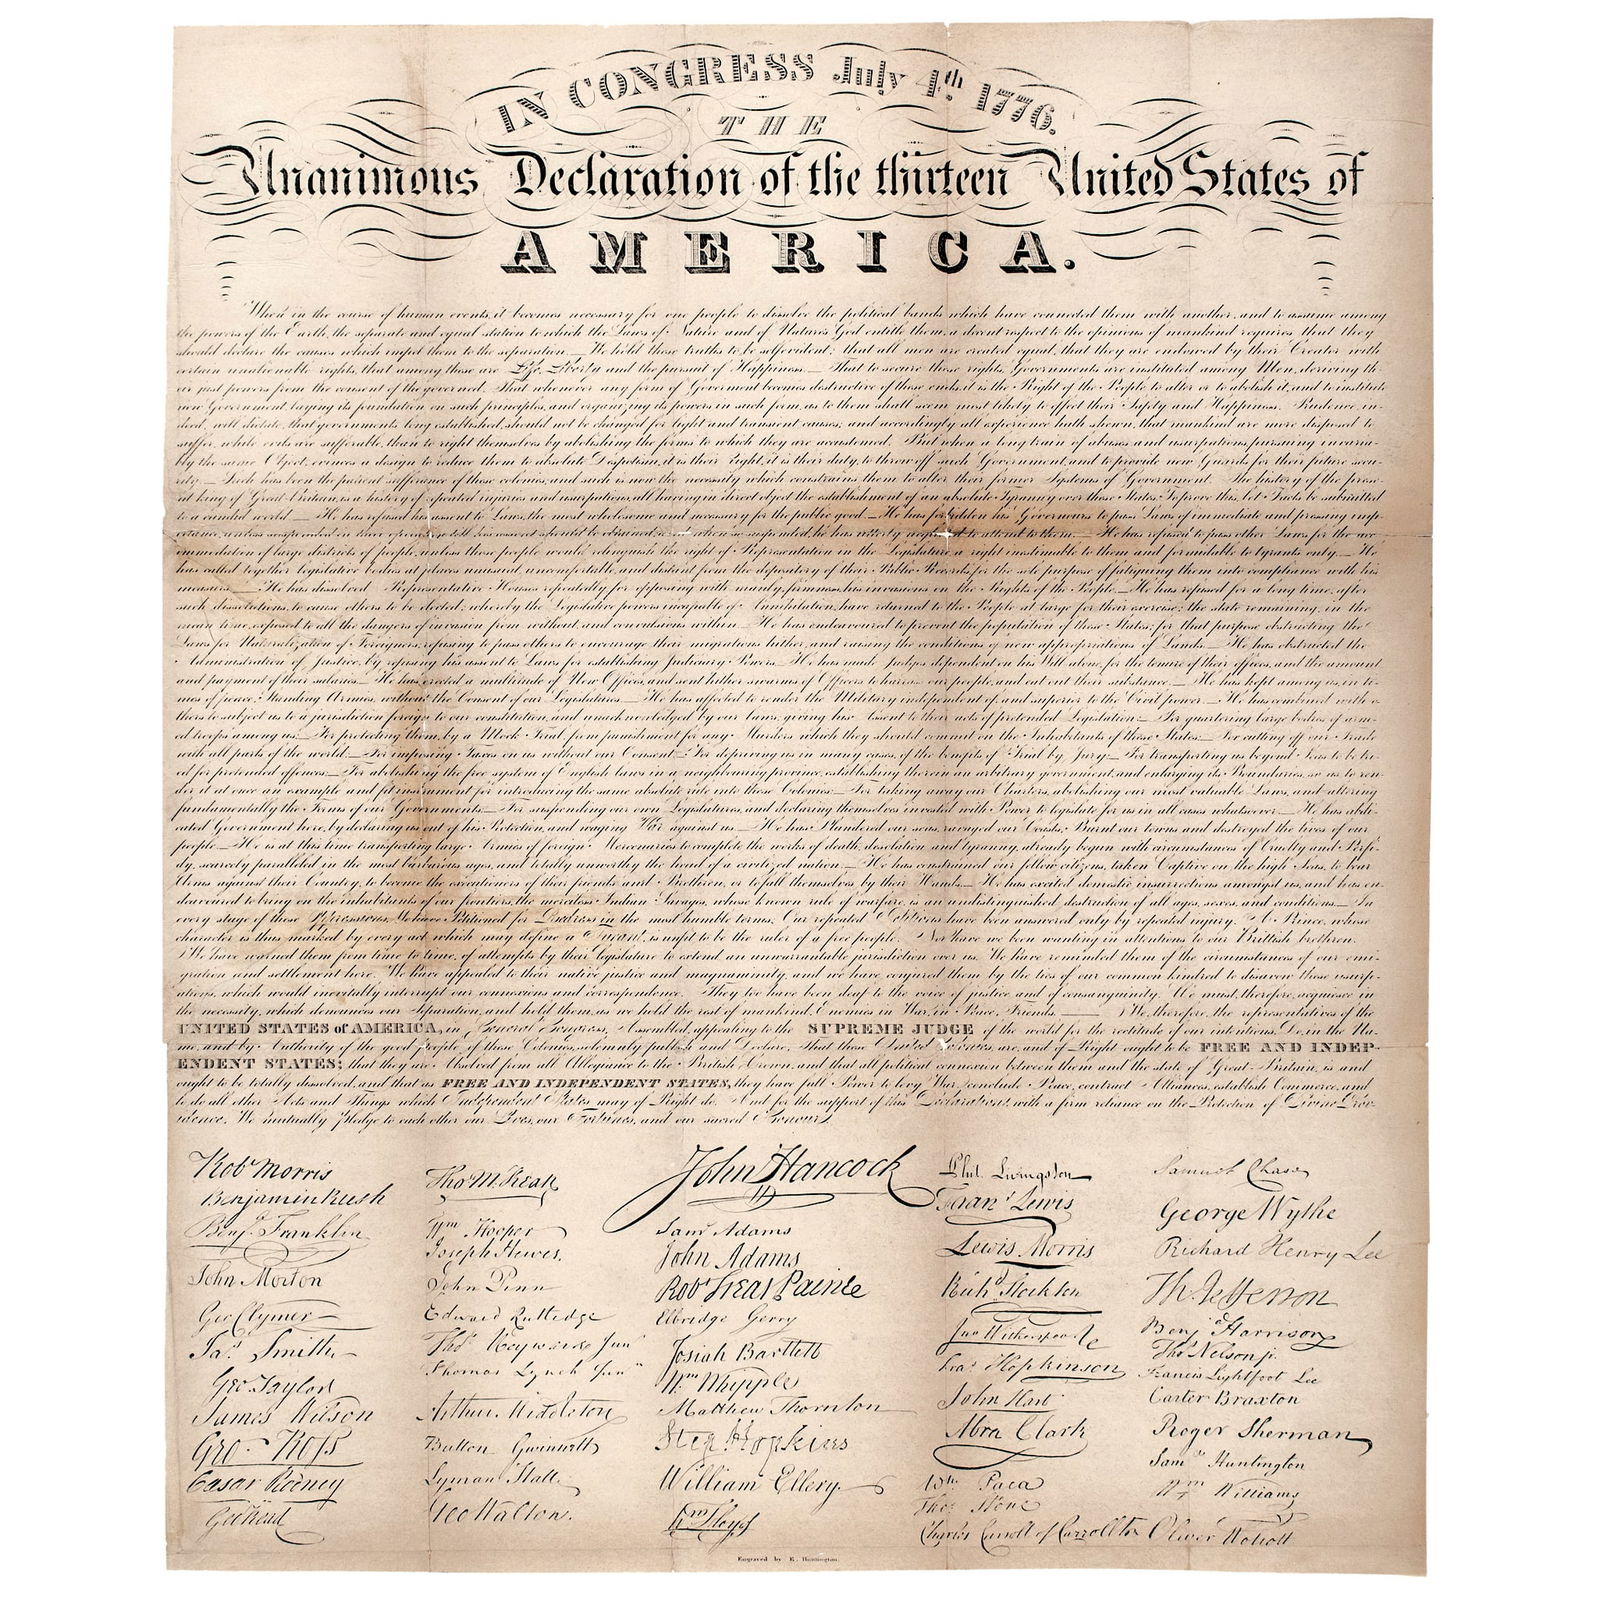 IN CONGRESS July 4th 1776.
THE
Unanimous Declaration of the thirteen United States of
AMERICA.
When in the course of human events, it becomes necessary for one people to dissolve the political bands which have connected them with another, and to assume among
the powers of the Earth, the separate and equal station to which the Laws of Nature and of Nature's God entitle them, a decent respect to the opinions of mankind requires, that they
should declare the causes which impel them to the separation. — We hold these truths to be self evident; that all men are created equal, that they are endowed by their Creator with
certain unalienable rights, that among these are Life, Liberty and the pursuit of Happiness. — That to secure these rights, Governments are instituted among Men, deriving th-
eir just powers from the consent of the governed. That whenever any form of Goverment becomes destructive of these ends, it is the Right of the People to alter or to abolish it, and to institute
new Government, laying its foundation on such principles, and organizing its powers in such form, as to them shall seem most likely to effect their Safety and Happiness. Prudence, in-
deed, will dictate, that governments long established, should not be changed for light and transient causes; and accordingly all experience hath shewn, that mankind are more disposed to
suffer, while evils are sufferable, than to right themselves by abolishing the forms to which they are accustomed. But when a long train of abuses and usurpations, pursuing invaria-
bly the same Object, evinces a design to reduce them to absolute Despotism, it is their right, it is their duty, to throw off such Government, and to provide new Guards for their future secu-
rity. — Such has been the patient sufferance of these colonies, and such is now the necessity which constrains them to alter their former Systems of Government. The history of the pres-
ent king of Great Britain, is a history of repeated injuries and usurpations, all having in direct object the establishment of an absolute Tyranny over these States. To prove this, let Facts be submitted
to a candid world. — He has refused his assent to Laws, the most wholesome and necessary for the public good. — He has forbidden his Governours to pass Laws of immediate and pressing imp-
ortance, unless suspended in their operation till his assent should be obtained, so when so suspended, he has utterly neglected to attend to them. — He has refused to pass other Laws for the acc-
ommodation of large districts of people, unless those people would relinquish the right of Representation in the Legislature, a right inestimable to them and formidable to tyrants only. — He
has called together legislative bodies at places unusual, uncomfortable, and distant from the depository of their Public Records, for the sole purpose of fatiguing them into compliance with his
measures. — He has dissolved Representative Houses repeatedly, for opposing with manly firmness, his invasions on the Rights of the People. — He has refused for a long time, after
such dissolutions, to cause others to be elected; whereby the Legislative powers incapable of Annihilation, have returned to the People at large for their exercise; the state remaining, in the
mean time, exposed to all the dangers of invasion from without, and convulsions within. — He has endeavoured to prevent the population of these States; for that purpose obstructing the
Laws for Naturalization of Foreigners, refusing to pass others to encourage their migrations hither, and raising the conditions of new appropriations of Lands. — He has obstructed the
Administration of Justice, by refusing his assent to Laws for establishing Judiciary Powers. — He has made Judges dependent on his Will alone, for the tenure of their offices, and the amount
and payment of their salaries. — He has erected a multitude of New Offices, and sent hither swarms of Officers to harrass our people, and eat out their substance. — He has kept among us, in ti-
mes of peace, Standing Armies, without the Consent of our Legislatures. — He has affected to render the Military independent of, and superior to the Civil power. — He has combined with o-
thers to subject us to a jurisdiction foreign to our constitution, and unacknowledged by our laws; giving his Assent to their acts of pretended Legislation: — For quartering large bodies of arm-
ed troops among us: — For protecting them, by a Mock Trial, from punishment for any Murders which they should commit on the Inhabitants of these States. — For cutting off our Trade
with all parts of the world. — For imposing Taxes on us without our Consent. — For depriving us in many cases, of the benefits of Trial by Jury. — For transporting us beyond Seas to be tri-
ed for pretended offences. — For abolishing the free system of English laws in a neighbouring province, establishing therein an arbitrary government, and enlarging its Boundaries, so as to ren-
der it at once an example and fit instrument for introducing the same absolute rule into these Colonies. — For taking away our Charters, abolishing our most valuable Laws, and altering
fundamentally the Forms of our Governments. — For suspending our own Legislatures, and declaring themselves invested with Power to legislate for us in all cases whatsoever. — He has abdi-
cated Government here, by declaring us out of his Protection, and waging War against us. — He has Plundered our seas, ravaged our Coasts, Burnt our towns and destroyed the lives of our
people. — He is at this time transporting large Armies of foreign Mercenaries to complete the works of death, desolation and tyranny, already begun with circumstances of Cruelty and Perfi-
dy, scarcely paralleled in the most barbarous ages, and totally unworthy the head of a civilized nation. — He has constrained our fellow citizens, taken Captive on the high Seas, to bear
Arms against their Country, to become the executioners of their friends and Brethren, or to fall themselves by their Hands. — He has excited domestic insurrections amongst us, and has en-
deavoured to bring on the inhabitants of our frontiers, the merciless Indian Savages, whose known rule of warfare, is an undistinguished destruction of all ages, sexes, and conditions. — In
every stage of these Oppressions, We have Petitioned for Redress in the most humble terms: Our repeated Petitions have been answered only by repeated injury. A Prince, whose
character is thus marked by every act which may define a Tyrant, is unfit to be the ruler of a free people. Nor have we been wanting in attentions to our Brittish brethren.
We have warned them from time to time, of attempts by their legislature to extend an unwarrantable jurisdiction over us. We have reminded them of the circumstances of our emi-
gration and settlement here. We have appealed to their native justice and magnanimity, and we have conjured them by the ties of our common kindred to disavow these usurp-
ations, which would inevitably interrupt our connexions and correspondence. They too have been deaf to the voice of justice and of consanguinity. We must, therefore, acquiesce in
the necessity, which denounces our Separation, and hold them, as we hold the rest of mankind, Enemies in War, in Peace, Friends. — We, therefore, the representatives of the
UNITED STATES of AMERICA, in General Congress, Assembled, appealing to the SUPREME JUDGE of the world for the rectitude of our intentions, Do, in the Na-
me, and by Authority of the good people of these Colonies, solemnly publish and Declare, That these United Colonies, are, and of Right ought to be FREE AND INDEP-
ENDENT STATES; that they are Absolved from all Allegiance to the British Crown, and that all political connexion between them and the state of Great-Britain, is and
ought to be totally dissolved, and that as FREE AND INDEPENDENT STATES, they have full Power to levy War, conclude Peace, contract Alliances, establish Commerce, and
to do all other Acts and Things which Independent States may of Right do. And for the support of this Declaration, with a firm reliance on the Protection of Divine Prov-
idence, We mutually Pledge to each other our Lives, our Fortunes, and our sacred Honour.
Robt Morris
Benjamin Rush
Benja Franklin
John Morton
Geo Clymer
Jas Smith
Geo Taylor
James Wilson
Geo. Ross
Caesar Rodney
Geo Read
Thos M:Kean
Wm Hooper
Joseph Hewes.
John Penn
Edward Rutledge
Thos Heyward Junr
Thomas Lynch Junr
Arthur Middleton
Button Gwinnett
Lyman Hall
Geo Walton.
John Hancock
Saml Adams
John Adams
Robt Treat Paine
Elbridge Gerry
Josiah Bartlett
Wm Whipple
Matthew Thornton
Step Hopkins
William Ellery
Wm Floyd
Phil. Livingston
Frans Lewis
Lewis Morris
Richd Stockton
Jno Witherspoon
Fras Hopkinson
John Hart
Abra Clark
Wm Paca
Thos Stone
Charles Carroll of Carrollton
Samuel Chase
George Wythe
Richard Henry Lee
Th. Jefferson
Benja Harrison
Thos Nelson jr.
Francis Lightfoot Lee
Carter Braxton
Roger Sherman
Saml Huntington
Wm Williams
Oliver Wolcott
Engraved by E. Huntington.